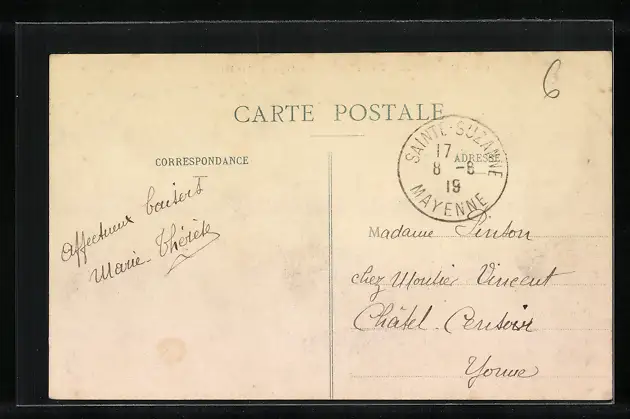 6
CARTE POSTALE
CORRESPONDANCE
ADRESSE
SAINTE-SUZANNE
17
8 -8
19
MAYENNE
Affectueux baisers
Marie-Thérèse
Madame Pinson
chez Moulier Vincent
Châtel-Censoir
Yonne